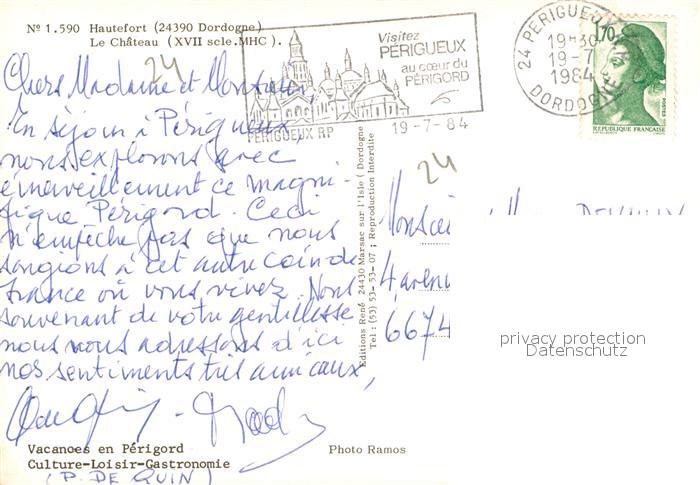 Nº 1.590 Hautefort (24390 Dordogne)
Le Château (XVII scle.MHC ).
24
Chers Madame et Monsieur,
En séjour à Périgueux,
nous explorons avec
émerveillement ce magni-
fique Périgord. Ceci
n'empêche pas que nous
songions à cet autre coin de
France où vous vivez. Nous
souvenant de votre gentillesse
nous vous adressons d'ici
nos sentiments très amicaux,
Vacances en Périgord
Culture-Loisir-Gastronomie
(P. DE QUIN)
Photo Ramos
Editions René 24430 Marsac sur l'Isle ( Dordogne
Tel : (53) 53-53-07 ; Reproduction Interdite
Visitez
PÉRIGUEUX
au cœur du
PÉRIGORD
PÉRIGUEUX RP
19-7-84
24 PERIGUEUX
19H30
19-7
1984
DORDOGNE
1,70
POSTES
REPUBLIQUE FRANÇAISE
24
Monsieu
4, avenu
6674
privacy protection
Datenschutz